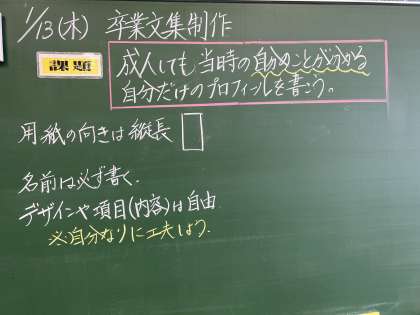 1/13(木) 卒業文集制作
課題
成人しても当時の自分のことが分かる
自分だけのプロフィールを書こう。
用紙の向きは縦長
名前は必ず書く.
デザインや項目(内容)は自由
※自分なりに工夫しよう.